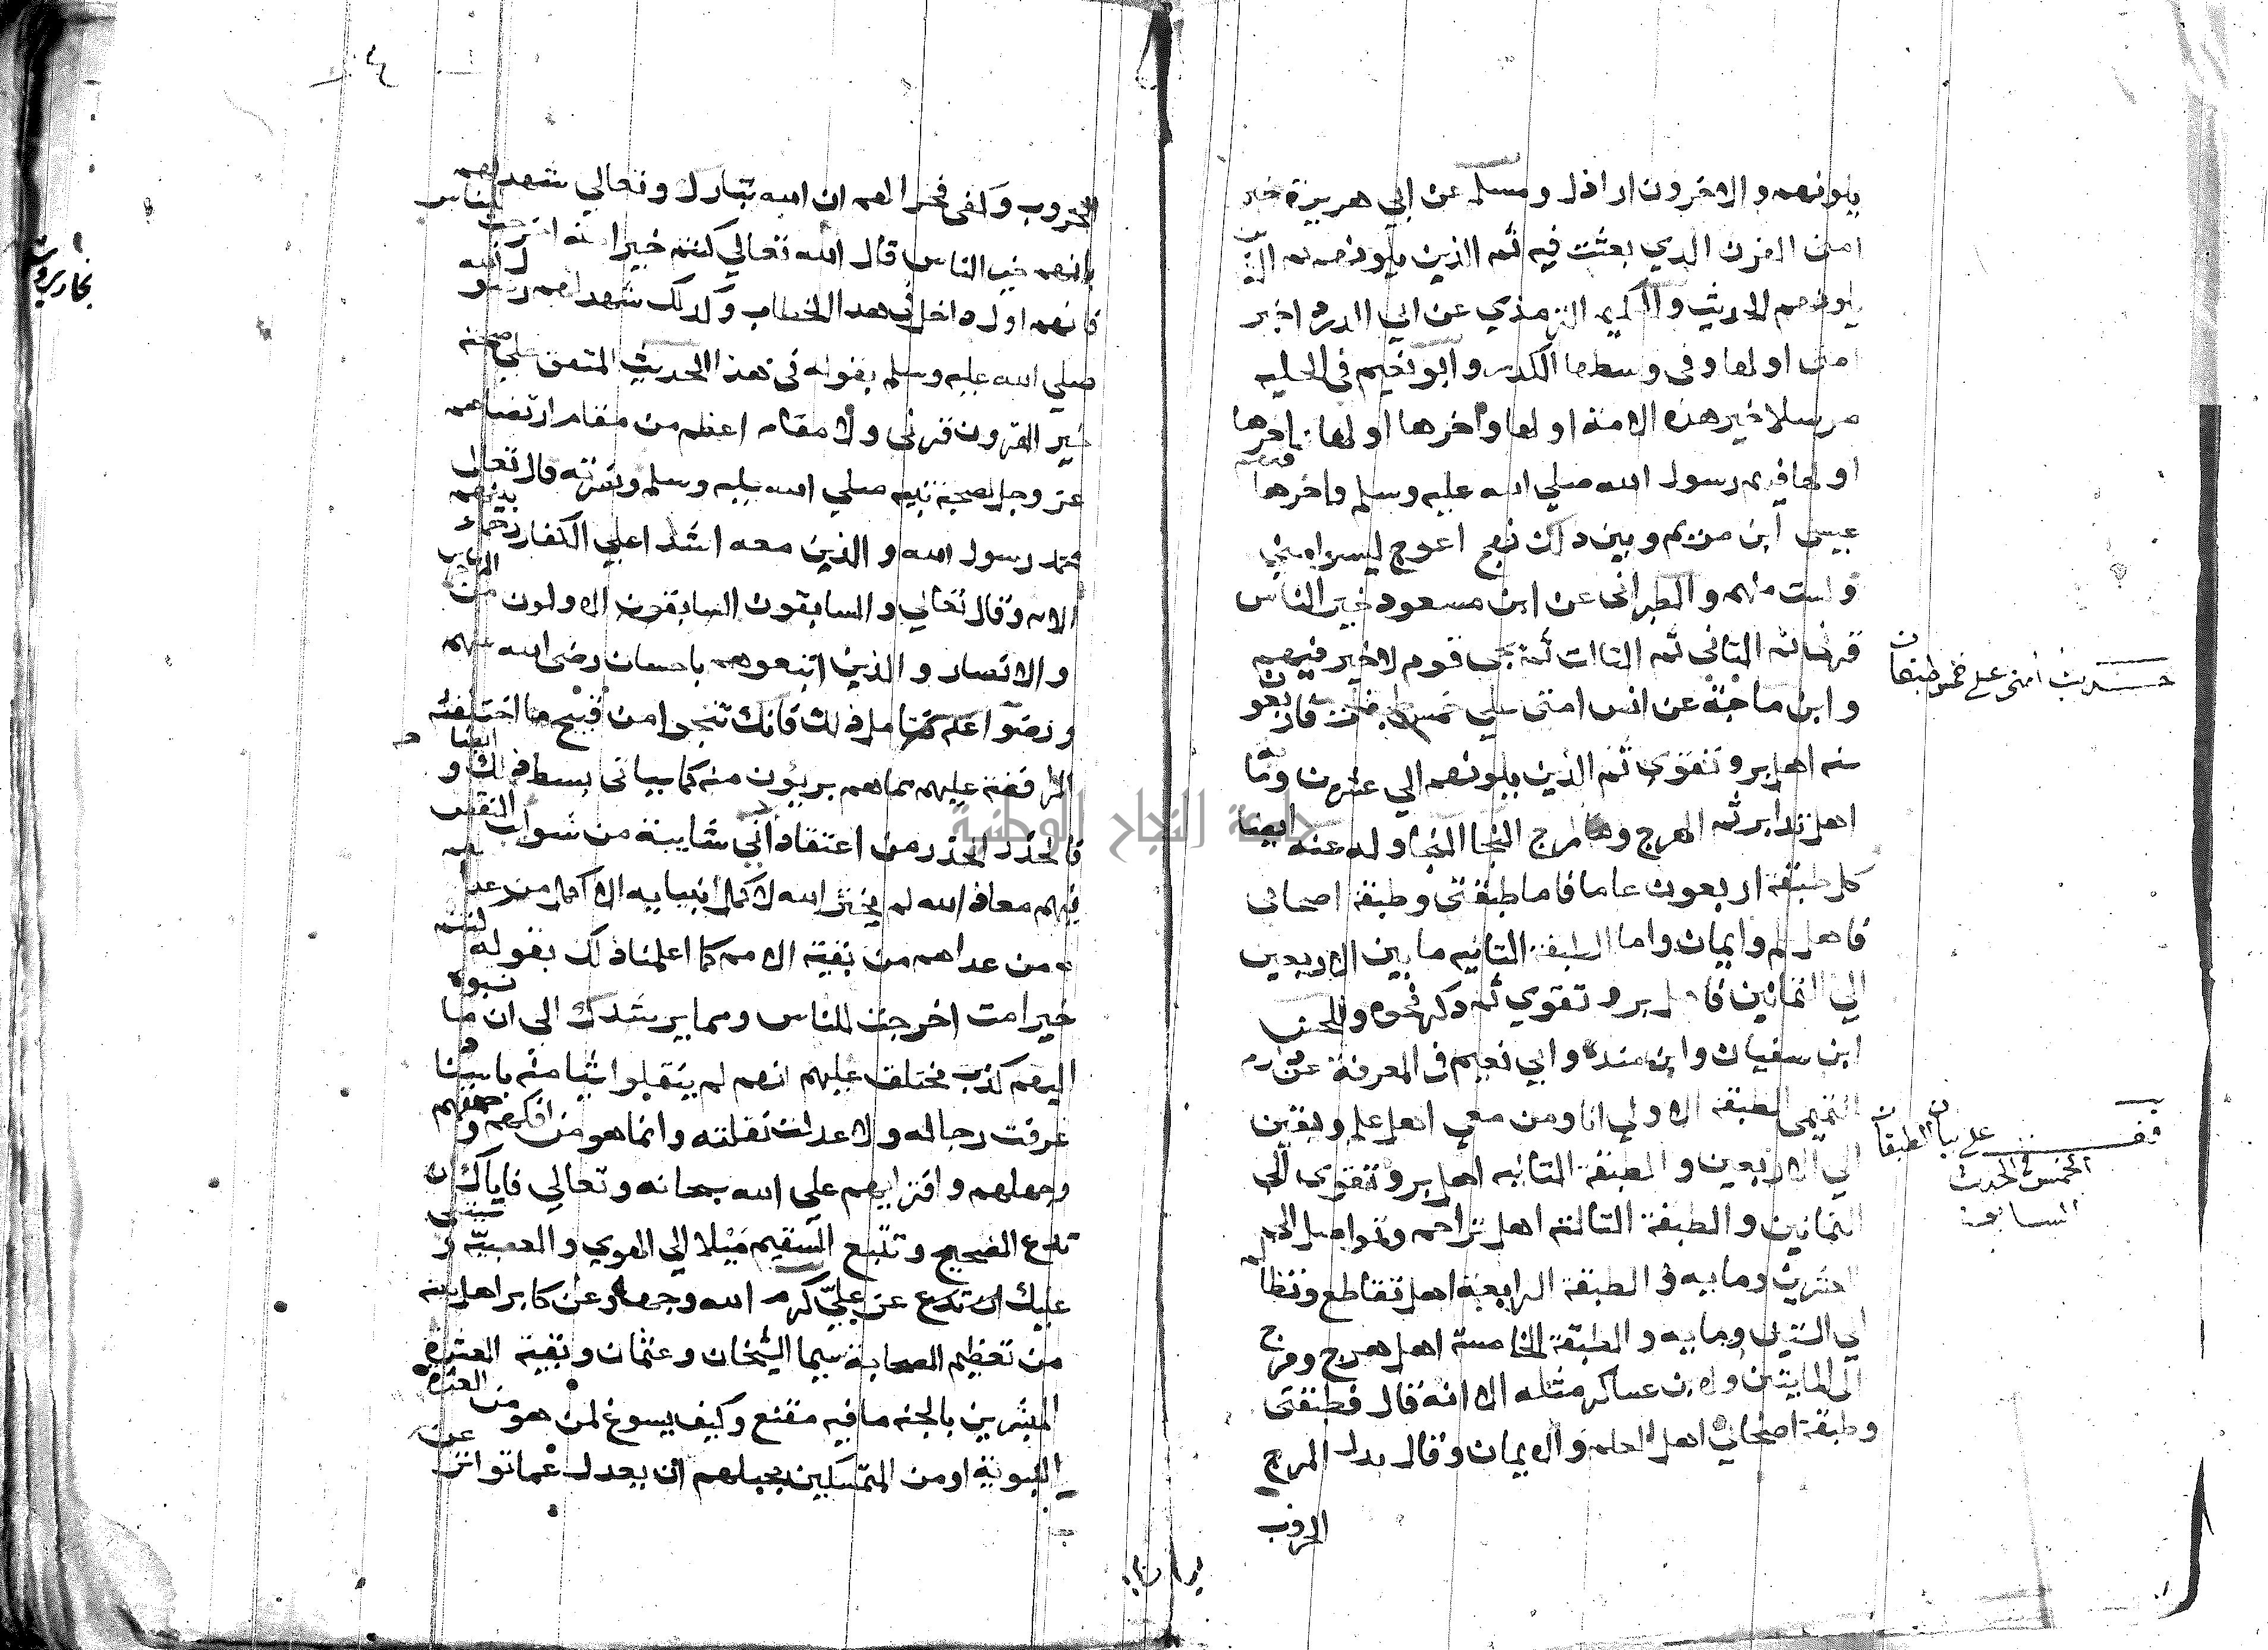 يلونهم والاخرون اراذل ومسلم عن ابي هريرة خير
امتي القرن الدي بعثت فيه ثم الذين يلونهم ثم الذين
يلونهم الحديث والحكيم الترمذي عن ابي الدردا خير
امتي اولها وفي وسطها الكدر وابو نعيم في الحليه
مرسلا خير هذه الامة اولها واخرها اولها
اولها فيهم رسول الله صلي الله عليه وسلم واخرها فيهم
عيسى ابن مريم وبين ذلك نهج اعوج ليسوا مني
ولست منهم والطبراني عن ابن مسعود خير الناس
قرني ثم الثاني ثم الثالث ثم يجى قوم لا خير فيهم
وابن ماجة عن انس امتي علي خمس طبقات فاربعون
سنه اهل بر وتقوى ثم الذين يلونهم الي عشرين وماية
اهل تدابر ثم الهرج والمرج النجا النجا وله عنه ايضا
كل طبقة اربعون عاما فاما طبقتي وطبقة اصحابي
فاهل علم وايمان واما الطبقة الثانيه ما بين الاربعين
الي الثمانين فاهل بر وتقوي ثم ذكر نحوه وللحسن
ابن سفيان وابن منده وابي نعيم في المعرفة عن دارم
التميمى الطبقة الاولي انا ومن معي اهل علم ويقين
الي الاربعين والطبقة الثانيه اهل بر وتقوى الي
الثمانين والطبقة الثالثة اهل تراحم وتواصل الي
العشرين ومايه والطبقة الرابعة اهل تقاطع وتظالم
الي الستين ومايه والطبقة الخامسة اهل هرج ومرج
الى المايتين ولابن عساكر مثله الا انه قال فطبقتى
وطبقة اصحابي اهل العلم والايمان وقال بدل المرج
الحروب
حديث امتى على خمس طبقات
قف على بيان الطبقات
الخمس في الحديث
السابق
الحروب وكفى فخرا لهم ان الله تبارك وتعالي شهد لهم
بانهم خير الناس قال الله تعالي كنتم خير امة اخرجت للناس
فانهم اول داخل في هدا الخطاب وكدلك شهد لهم رسول الله
صلي الله عليه وسلم بقوله في هذا الحديث المتفق علي صحته
خير القرون قرني ولا مقام اعظم من مقام ارتضاهم
عز وجل لصحبة نبيه صلي الله عليه وسلم ونصرته قال تعالى
محمد رسول الله والذين معه اشدا علي الكفار رحماء بينهم
الايه وقال تعالي والسابقون السابقون الاولون من المهاجرين
والانصار والذين اتبعوهم باحسان رضى الله عنهم
ورضوا عنه فتامل ذلك فانك تنجوا من قبيح ما اختلقته
الرافضة عليهم مماهم بريون منه كما سياتي بسط ذلك ايضا و
فالحذر الحذر من اعتقاد ادني شايبة من شوايب النقص
فيهم معاذ الله لم يختر الله لاكمل انبيايه الا اكمل من عداهم
من بقية الامم كما اعلمنا ذلك بقوله كنتم
خير امت اخرجت للناس ومما يرشدك الى ان ما نسبوه
اليهم كذب مختلق عليهم انهم لم ينقلوا شيا منه باسناد
عرفت رجاله ولا عدلت نقلته وانما هو من افكهم وحمقهم
وجهلهم وافترايهم علي الله سبحانه وتعالي فاياك ان
تدع الصحيح وتتبع السقيم ميلا الي الهوي والعصبية و
عليك ان تدع عن علي كرم الله وجهه وعن اكابر اهل بيته
من تعظيم الصحابة سيما الشيخان وعثمان وبقية العشرة
المبشرين بالجنه ما فيه مقنع وكيف يسوغ لمن هو من العترة
النبوية او من المتمسكين بحبلهم ان يعدل عما تواتر عن
جامعة النجاح الوطنية